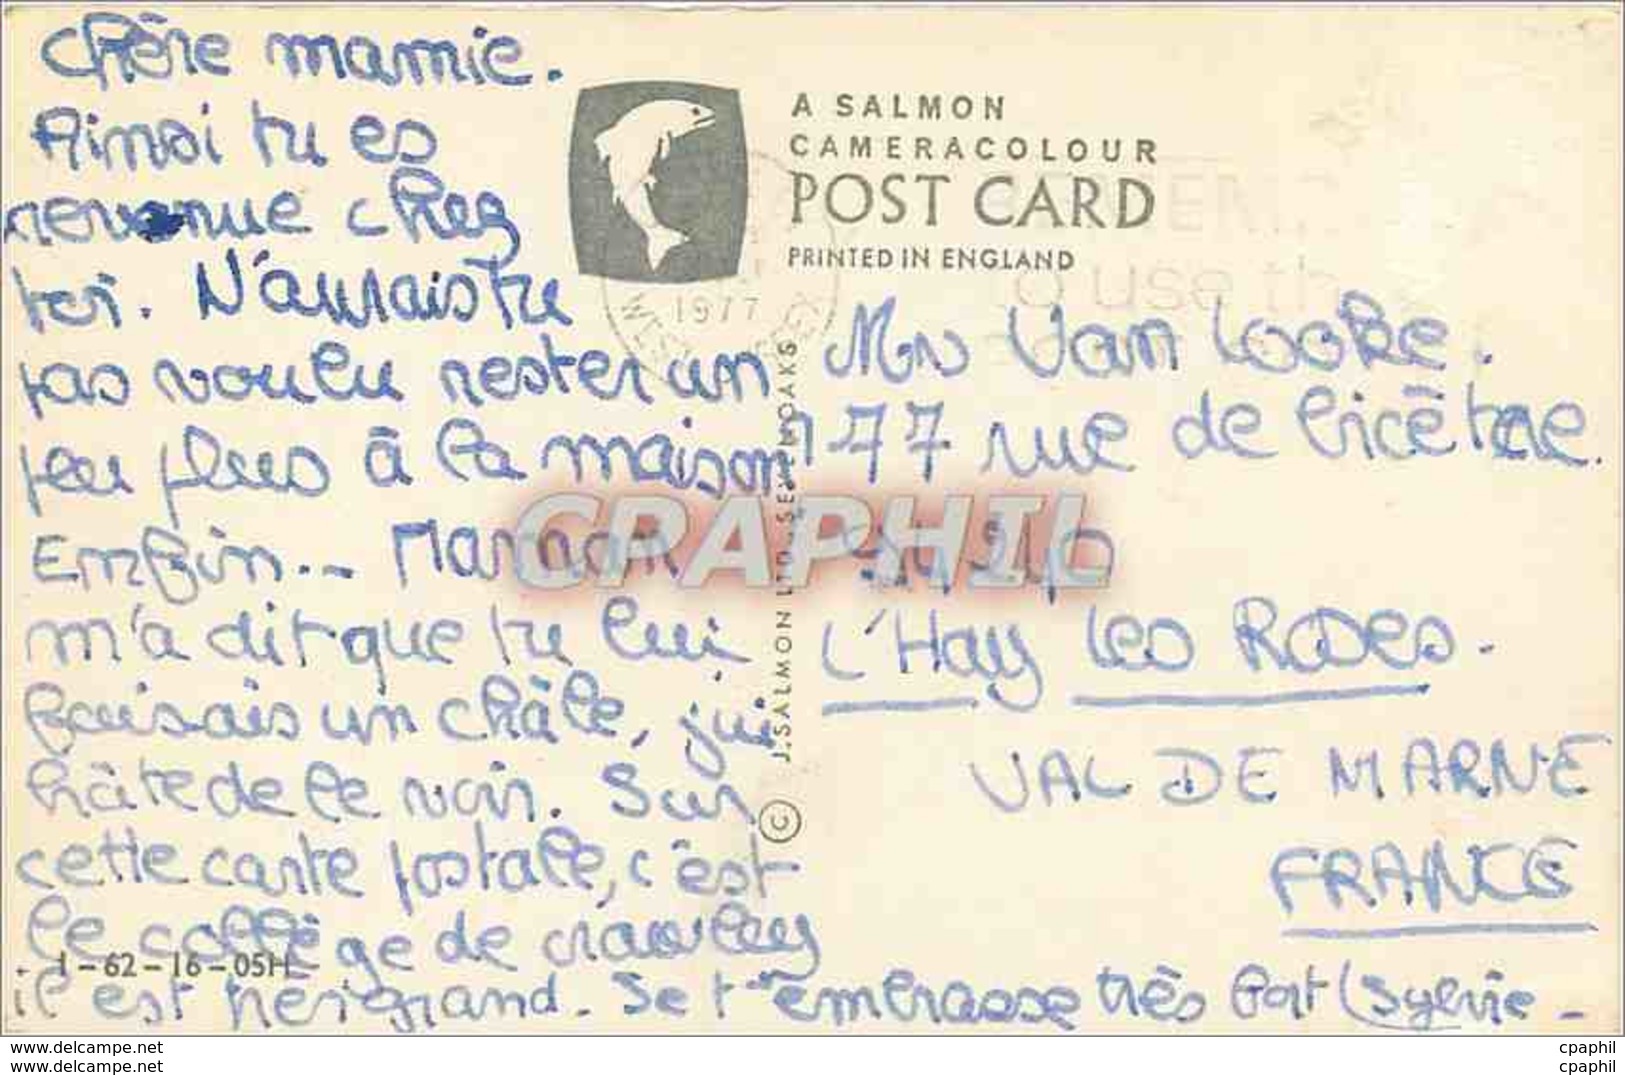 Chère mamie.
Ainsi tu es
revenue chez
toi. N'aurais tu
pas voulu rester un
peu plus à la maison
Enfin... Maman
m'a dit que tu lui
faisais un châle, j'ai
hâte de le voir. Sur
cette carte postale, c'est
le collège de crawley
il est très grand. Je t'embrasse très fort (Sylvie-
1-62-16-05H
A SALMON
CAMERACOLOUR
POST CARD
PRINTED IN ENGLAND
1977
to use th
J. SALMON LTD., SEVENOAKS
©
Mrs Van Looke.
77 rue de bicêtre.
94240
L'Hay les Roses.
VAL DE MARNE
FRANCE
CPAPHIL
www.delcampe.net
www.delcampe.net
cpaphil
cpaphil